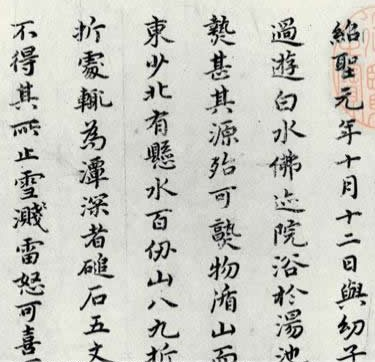 紹聖元年十月十二日與幼子
過遊白水佛迹院浴於湯池
熱甚其源殆可熟物循山而
東少北有懸水百仞山八九折
折處輒為潭深者磓石五丈
不得其所止雪濺雷怒可喜